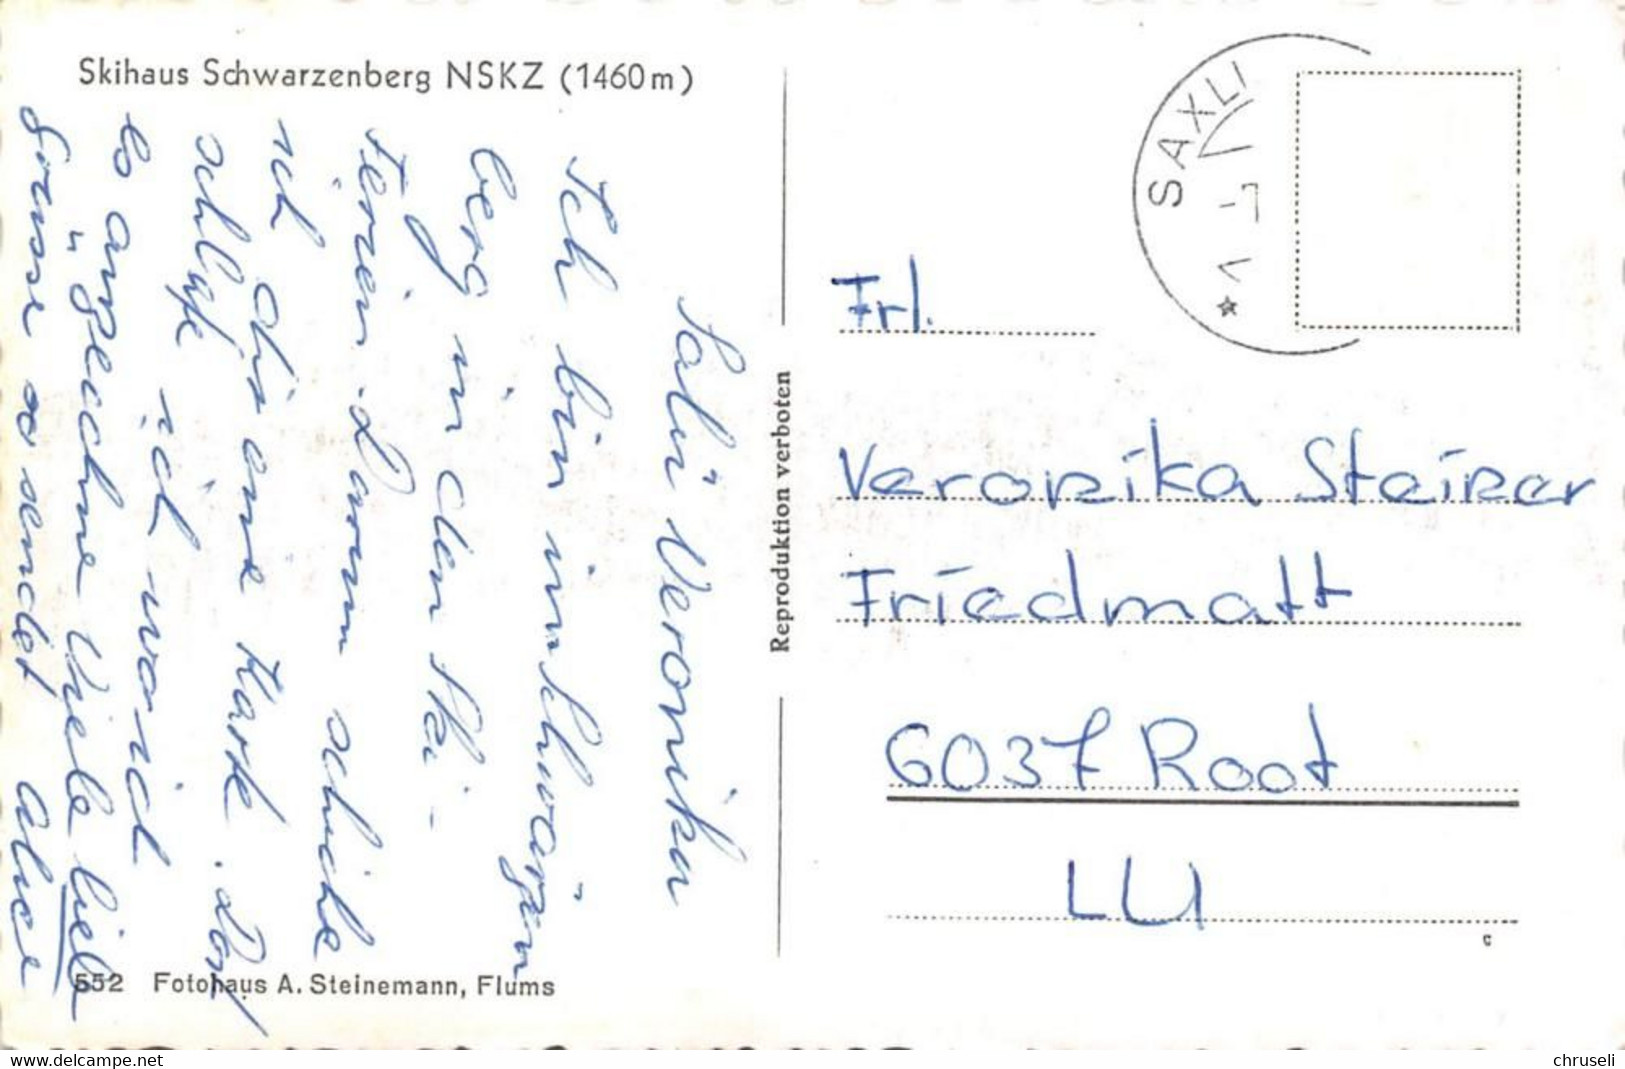 Skihaus Schwarzenberg NSKZ (1460 m)
Sali Veronika
Ich bin im Schwarzen
berg in den Ski-
ferien. Darum schicke
ich dir eine Karte. Dort
schlafe ich
es
Viele liebe
Grüsse sendet
552 Fotohaus A. Steinemann, Flums
Reproduktion verboten
SAXLI
Frl.
Veronika Steiner
Friedmatt
6037 Root
LU
c
www.delcampe.net
chruseli